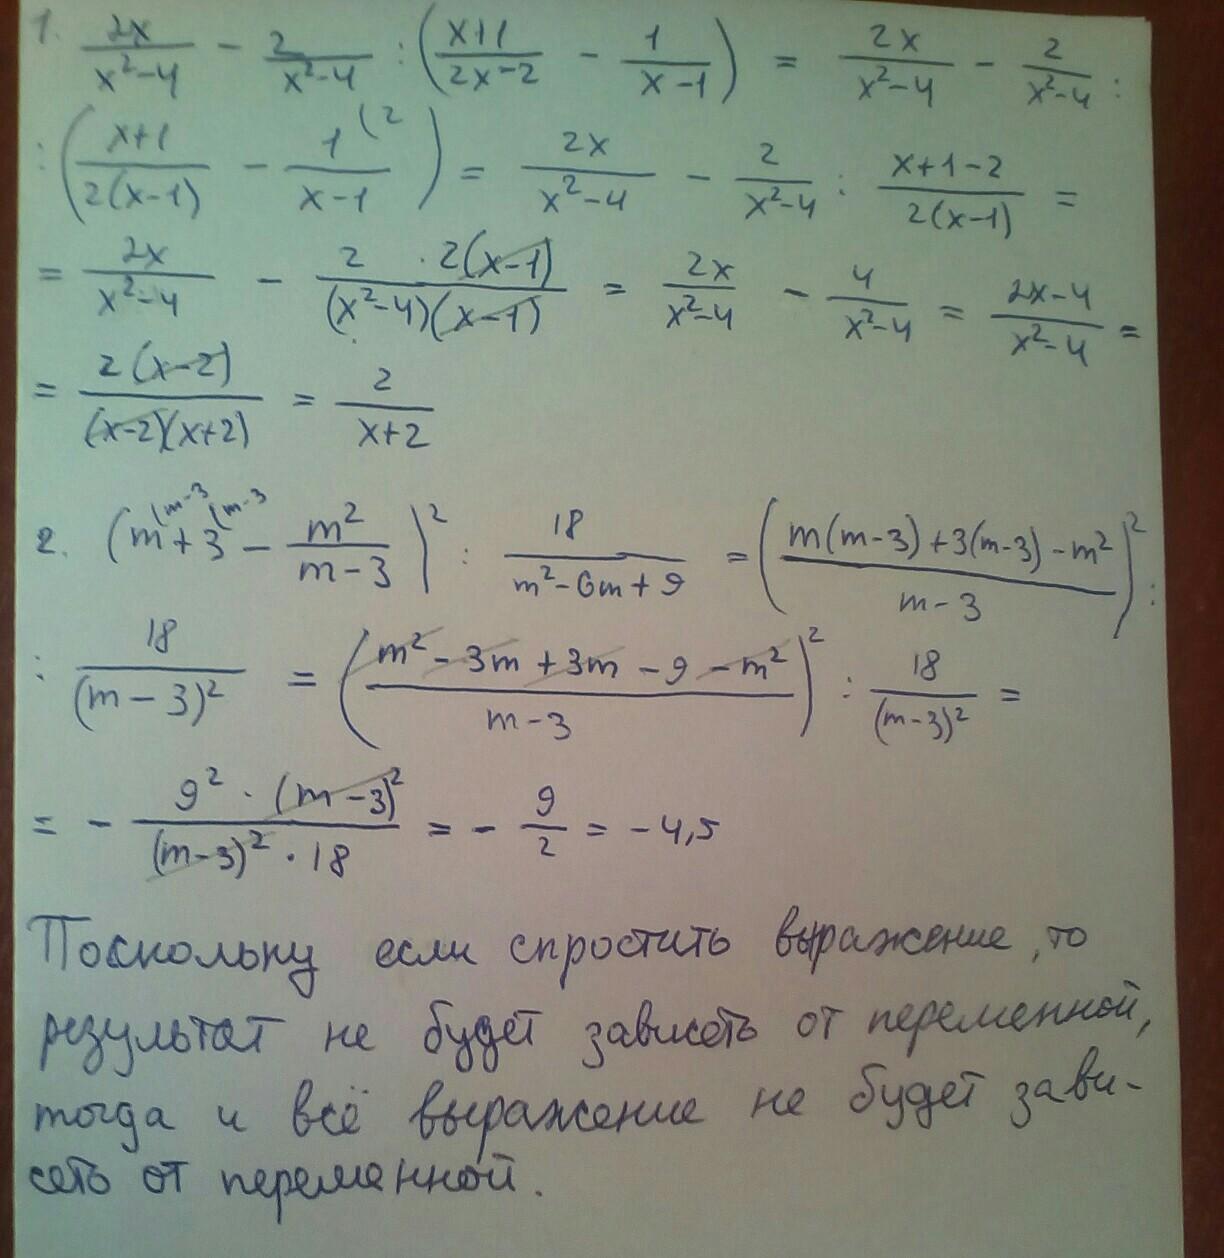 1. 2x/(x²-4) - 2/(x²-4) : ((x+1)/(2x-2) - 1/(x-1)) = 2x/(x²-4) - 2/(x²-4) :
: ((x+1)/(2(x-1)) - 1/(x-1) (2) = 2x/(x²-4) - 2/(x²-4) : (x+1-2)/(2(x-1)) =
= 2x/(x²-4) - (2 · 2(x-1))/((x²-4)(x-1)) = 2x/(x²-4) - 4/(x²-4) = (2x-4)/(x²-4) =
= (2(x-2))/((x-2)(x+2)) = 2/(x+2)
2. (m (m-3 + 3 (m-3 - m²/(m-3))² : 18/(m²-6m+9) = ((m(m-3)+3(m-3)-m²)/(m-3))² :
: 18/(m-3)² = ((m²-3m+3m-9-m²)/(m-3))² : 18/(m-3)² =
= - (9² · (m-3)²)/((m-3)² · 18) = - 9/2 = -4,5
Поскольку если спростить выражение, то
результат не будет зависеть от переменной,
тогда и всё выражение не будет зави-
сеть от переменной.